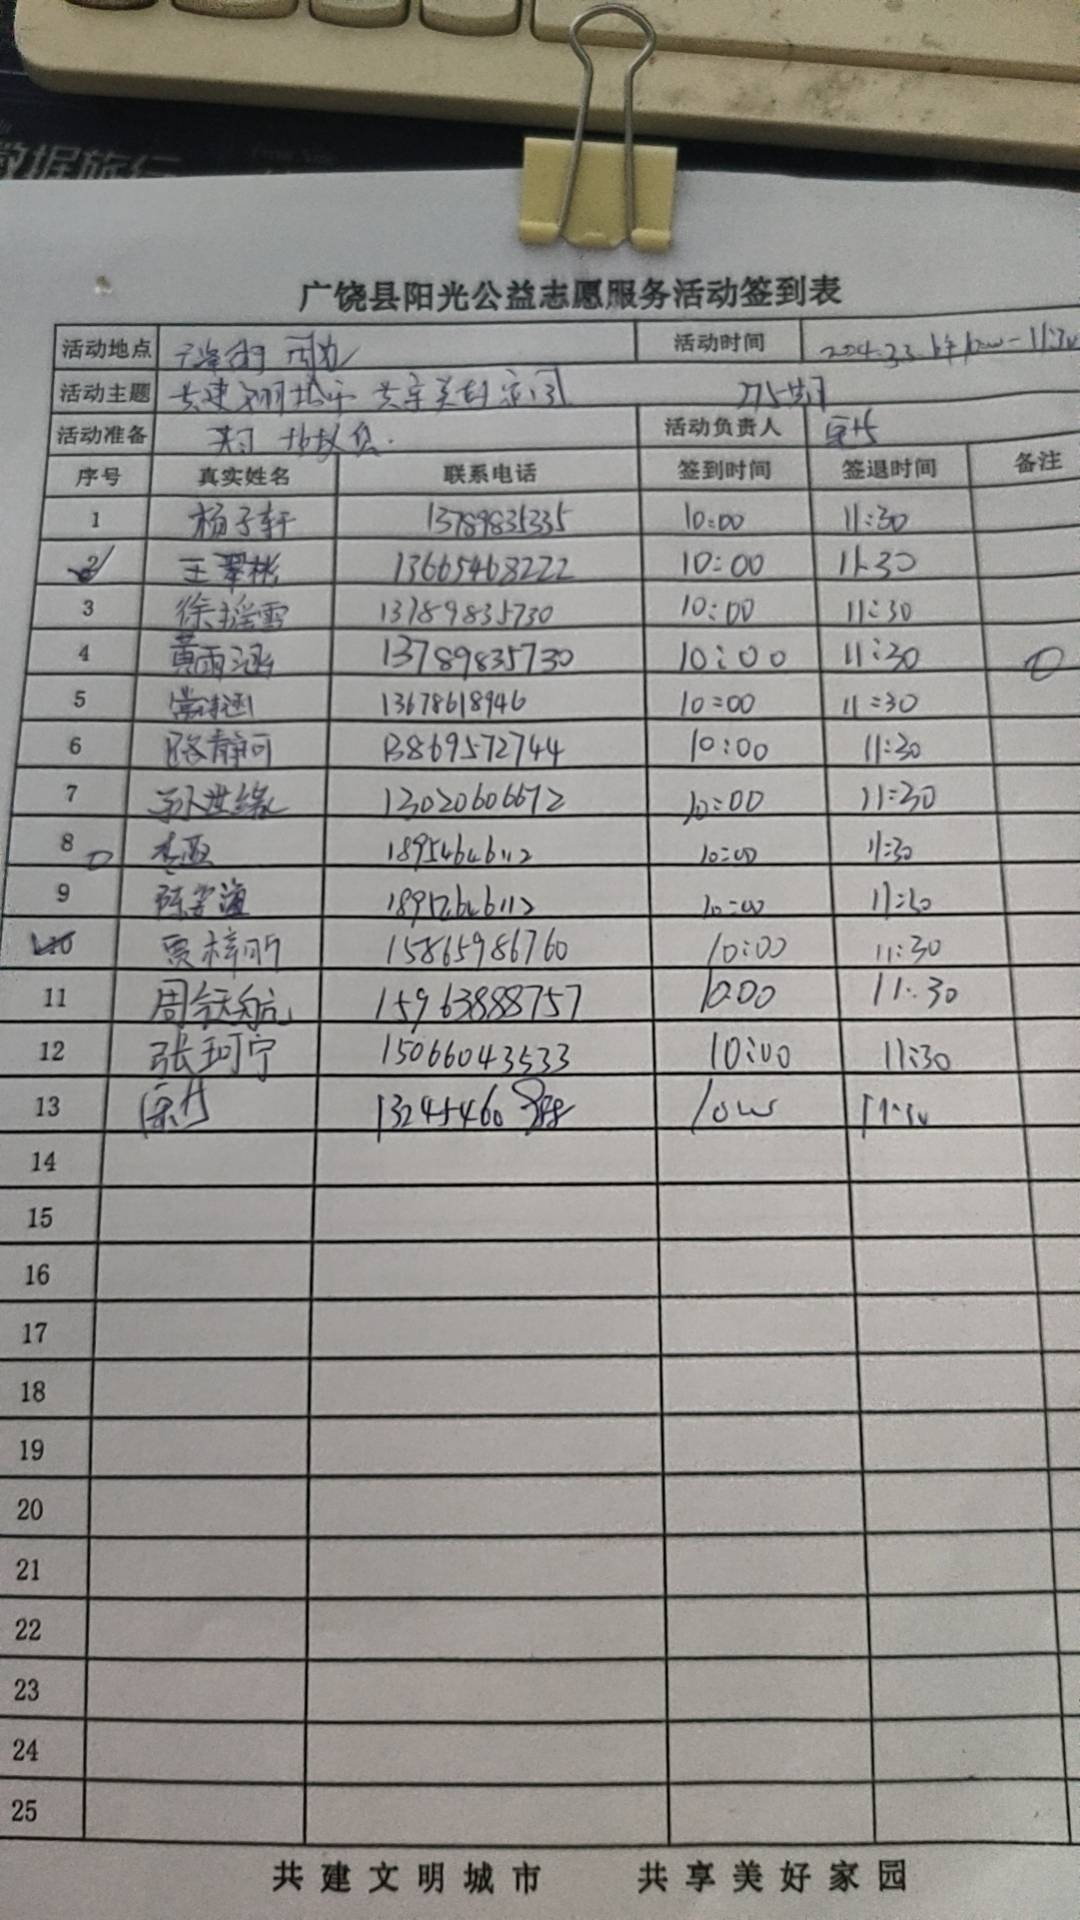 数据旅行
广饶县阳光公益志愿服务活动签到表
活动地点 周边 活动时间
活动主题 共建文明城市 共享美好家园
活动准备 活动负责人
序号 真实姓名 联系电话 签到时间 签退时间 备注
1 杨子轩 13789835335 10:00 11:30
2 王 13665468222 10:00 11:30
3 徐瑶雪 13789835730 10:00 11:30
4 黄雨涵 13789835730 10:00 11:30
5 13678618946 10:00 11:30
6 路静 13869572744 10:00 11:30
7 孙世缘 13020606672 10:00 11:30
8 18954646112 10:00 11:30
9 陈 10:00 11:30
10 贾梓昕 15865986760 10:00 11:30
11 周 航 15963888757 10:00 11:30
12 张珂宁 15066043533 10:00 11:30
13 11:30
14
15
16
17
18
19
20
21
22
23
24
25
共建文明城市 共享美好家园